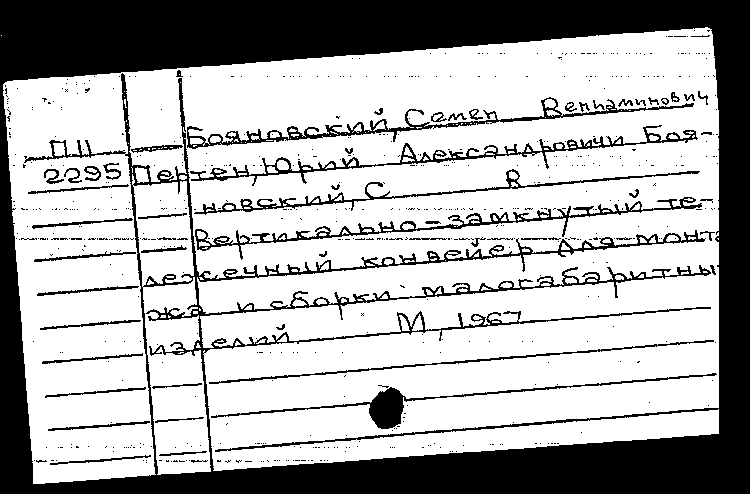 Бояновский, Семен Вениаминович
П.11
2295 Пертен, Юрий Александрович и Боя-
новский, С В
Вертикально-замкнутый те-
лежечный конвейер для монта
жа и сборки малогабаритны
изделий М, 1967